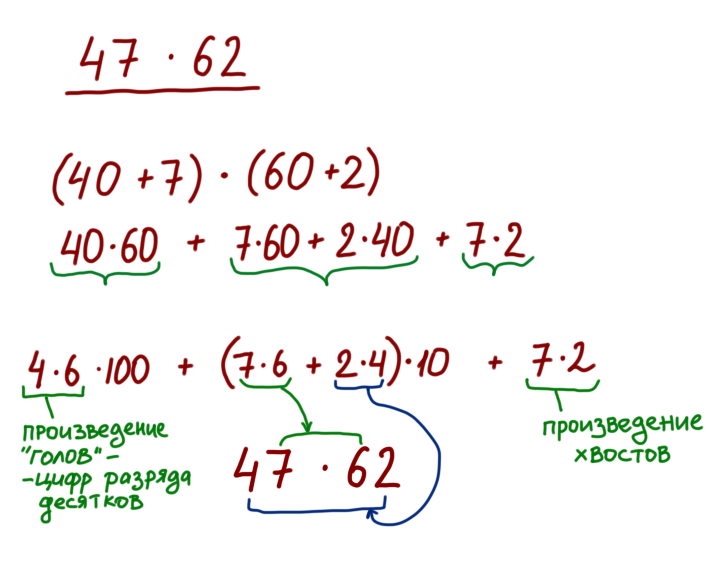 47 · 62
(40 + 7) · (60 + 2)
40·60 + 7·60 + 2·40 + 7·2
4·6 ·100 + (7·6 + 2·4)·10 + 7·2
произведение
"голов" –
-цифр разряда
десятков
произведение
хвостов
47 · 62